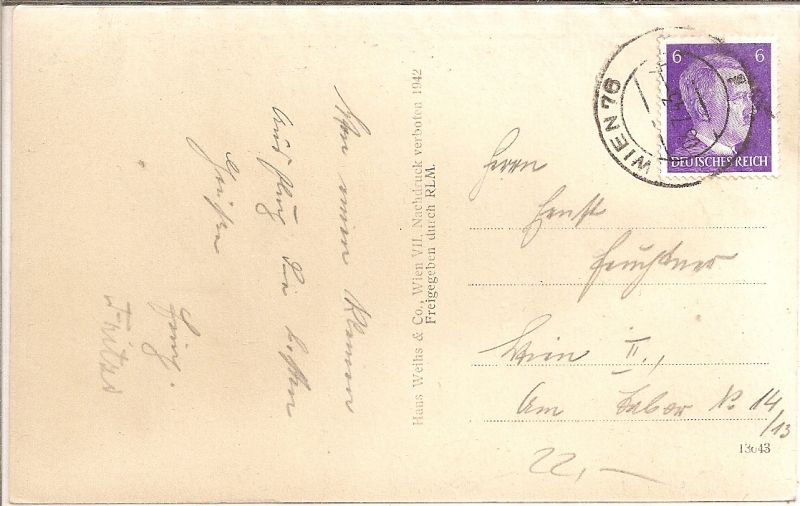 Von einem kleinen
Ausflug die besten
Grüße
Fritzl
Hans Weihs & Co., Wien VII, Nachdruck verboten 1942
Freigegeben durch RLM.
WIEN 76
6 6
DEUTSCHES REICH
Herrn
Ernst
Feuchtner
Wien II.,
Am Tabor No. 14
/13
13643
22,–